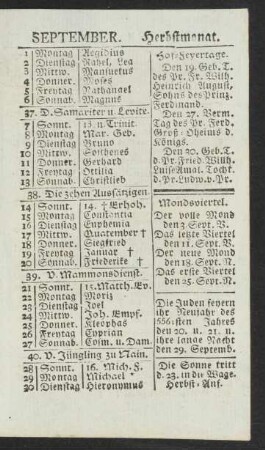 SEPTEMBER. Herbstmonat.
1 Montag Aegidius
2 Dienstag Rahel, Lea
3 Mittw. Mansuetus
4 Donner. Moses
5 Freitag Nathanael
6 Sonnab. Magnus
37. V. Samariter u Levite.
7 Sonnt. 13. n. Trinit.
8 Montag Mar. Geb.
9 Dienstag Bruno
10 Mittw. Sosthenes
11 Donner. Gerhard
12 Freitag Ottilia
13 Sonnab. Christlieb
38. Die zehen Aussätzigen.
14 Sonnt. 14. † Erhöh.
15 Montag Constantia
16 Dienstag Euphemia
17 Mittw. Quatember †
18 Donner. Siegfried
19 Freitag Januar †
20 Sonnab. Friederike †
39. V. Mammonsdienst.
21 Sonnt. 15. Matth. Ev.
22 Montag Moriz
23 Dienstag Joel
24 Mittw. Joh. Empf.
25 Donner. Kleophas
26 Freitag Cyprian
27 Sonnab. Cosm. u. Dam.
40. V. Jüngling zu Nain.
28 Sonnt. 16. Mich. F.
29 Montag Michael
30 Dienstag Hieronymus
Hof-Feyertage.
Den 19. Geb. T.
des Pr. Fr. Wilh.
Heinrich August,
Sohns des Prinz.
Ferdinand.
Den 27. Verm.
Tag des Pr. Ferd.
Groß-Oheims d.
Königs.
Den 30. Geb. T.
d. Pr. Fried. Wilh.
Luise Amal. Tocht.
d. Pr. Ludw. v. Pr.
Mondsviertel.
Der volle Mond
den 3. Sept. V.
Das letzte Viertel
den 11. Sept. V.
Der neue Mond
den 18. Sept. N.
Das erste Viertel
den 25. Sept. N.
Die Juden feyern
ihr Neujahr des
5561sten Jahres
den 20. u. 21. u.
ihre lange Nacht
den 29. Septemb.
Die Sonne tritt
d. 23. in die Wage.
Herbst-Anf.